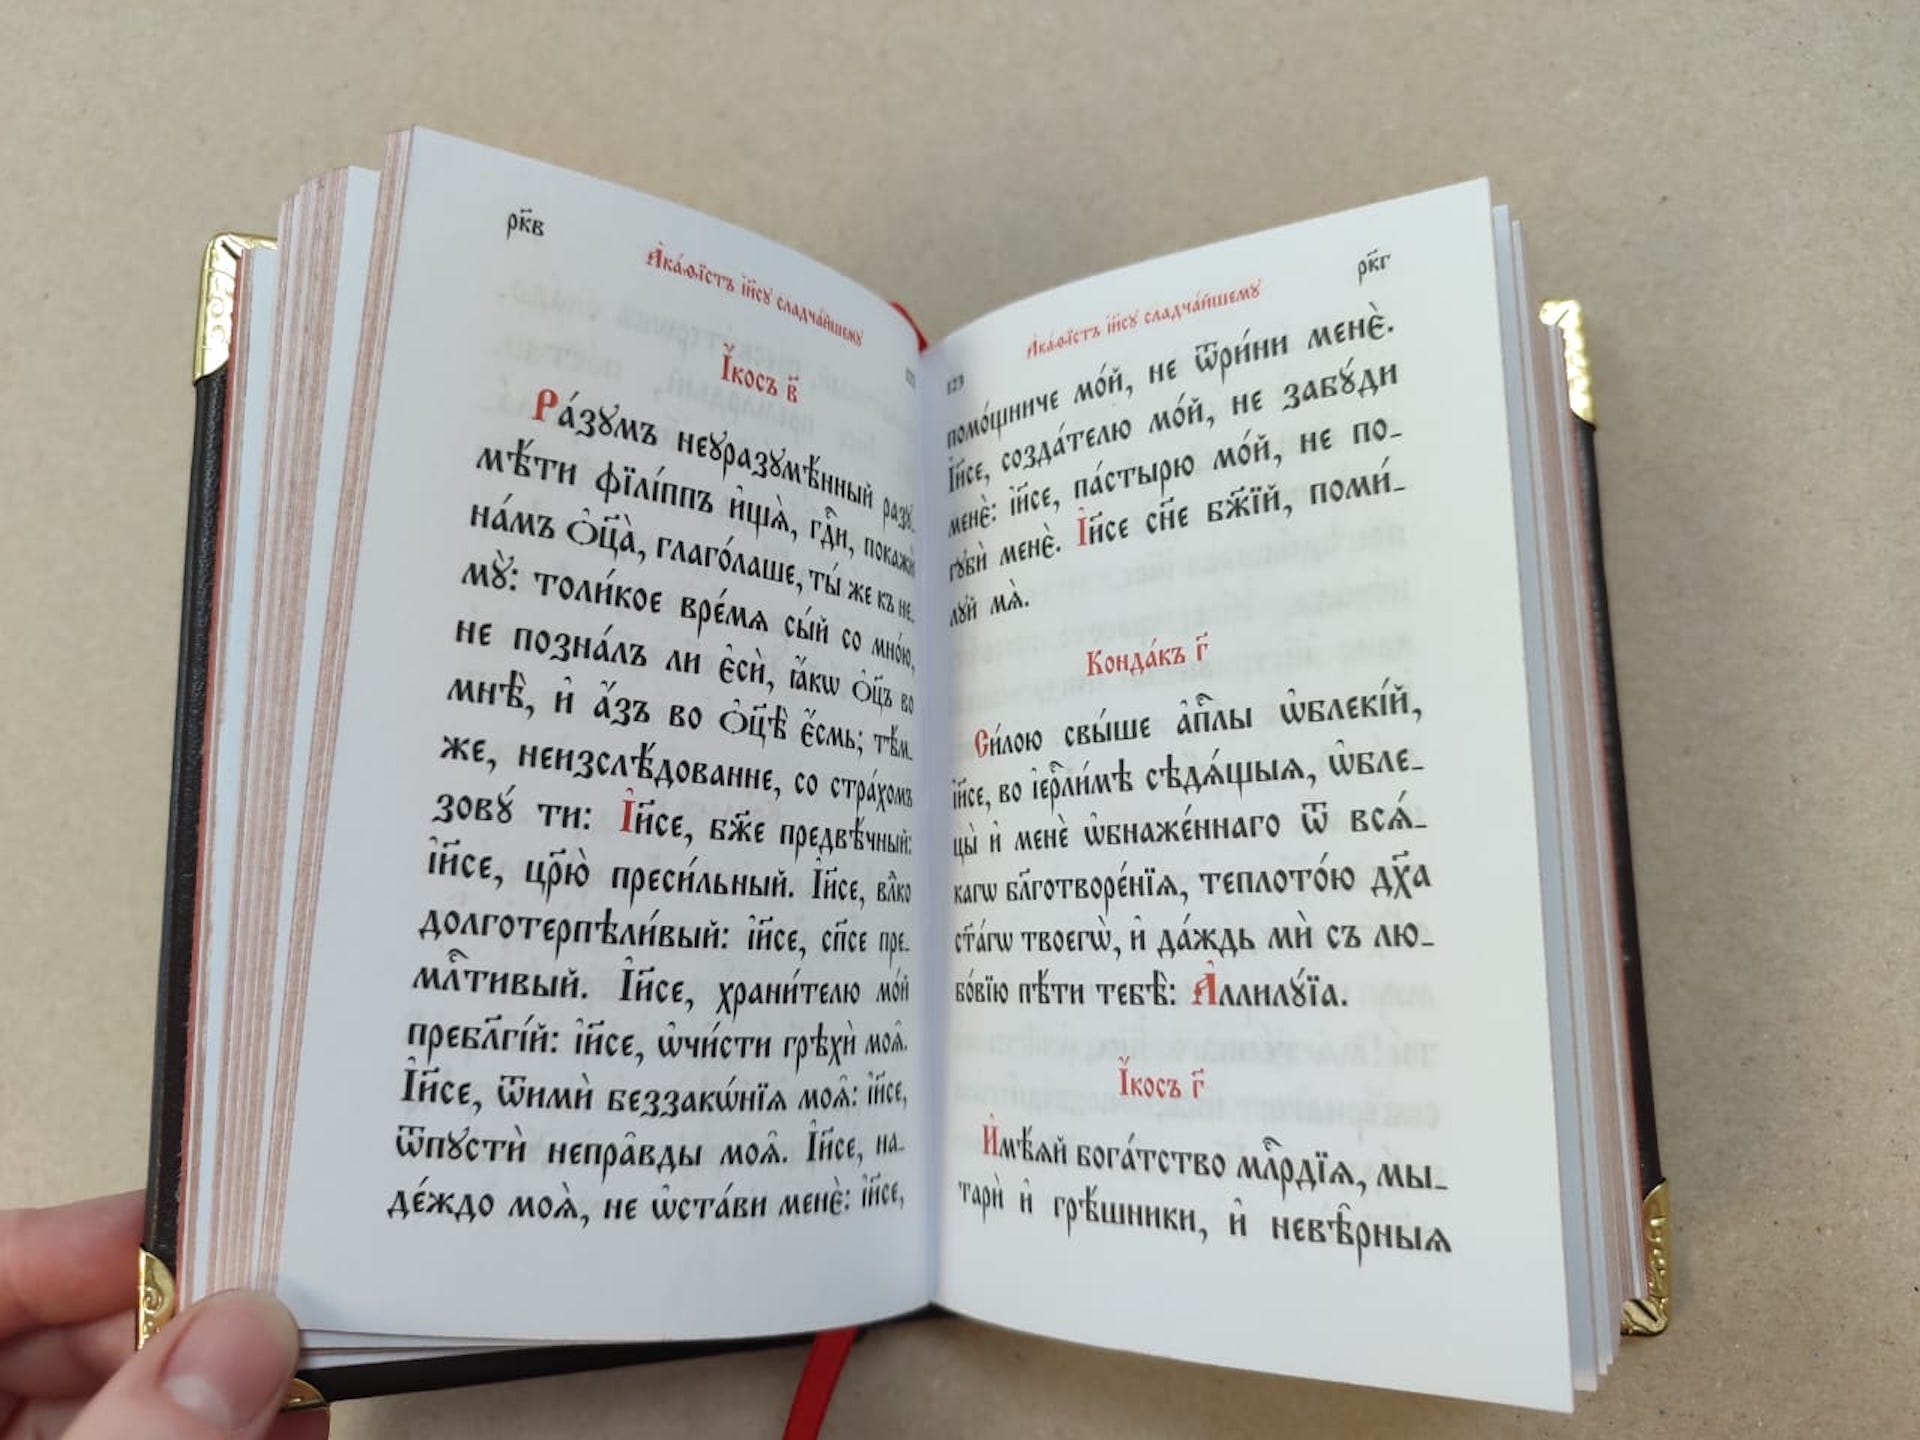 рк҃в
А҆ка́ѳїстъ і҆и҃сꙋ сладча́йшемꙋ
І҆́косъ в҃
Ра́зꙋмъ неꙋразꙋмѣ́нный разꙋ-
мѣ́ти фїлі́ппъ и҆щѧ̀, гдⷭ҇и, покажѝ
на́мъ ѻ҆ц҃а̀, глаго́лаше, ты́ же къ не-
мꙋ̀: толи́кое вре́мѧ сы́й со мно́ю,
не позна́лъ ли є҆сѝ, ꙗ҆́кѡ ѻ҆ц҃ъ во
мнѣ̀, и҆ а҆́зъ во ѻ҆ц҃ѣ̀ є҆́смь; тѣ́м-
же, неизслѣ́дованне, со стра́хомъ
зовꙋ́ ти: І҆и҃се, бж҃е предвѣ́чный:
і҆и҃се, цр҃ю̀ преси́льный. І҆и҃се, влⷣко
долготерпѣли́вый: і҆и҃се, сп҃се пре-
млⷭ҇тивый. І҆и҃се, храни́телю мо́й
пребл҃гі́й: і҆и҃се, ѡ҆чи́сти грѣхѝ моѧ̑.
І҆и҃се, ѿимѝ беззакѡ́нїѧ моѧ̑: і҆и҃се,
ѿпꙋстѝ непра̑вды моѧ̑. І҆и҃се, на-
де́ждо моѧ̀, не ѡ҆ста́ви менѐ: і҆и҃се,
рк҃г
А҆ка́ѳїстъ і҆и҃сꙋ сладча́йшемꙋ
123
помо́щниче мо́й, не ѿри́ни менѐ.
І҆и҃се, созда́телю мо́й, не забꙋ́ди
менѐ: і҆и҃се, па́стырю мо́й, не по-
гꙋбѝ менѐ. І҆и҃се сн҃е бж҃їй, поми́-
лꙋй мѧ̀.
Конда́къ г҃
Си́лою свы́ше а҆пⷭ҇лы ѡ҆блекі́й,
і҆и҃се, во і҆ерⷭ҇ли́мѣ сѣдѧ́щыѧ, ѡ҆бле-
цы̀ и҆ менѐ ѡ҆бнаже́ннаго ѿ всѧ́-
кагѡ бл҃готворе́нїѧ, теплото́ю дх҃а
ст҃а́гѡ твоегѡ̀, и҆ да́ждь мѝ съ лю-
бо́вїю пѣ́ти тебѣ̀: А҆ллилꙋ́їа.
І҆́косъ г҃
И҆мѣ́ѧй бога́тство млⷭ҇рдїѧ, мы-
тарѝ и҆ грѣ́шники, и҆ невѣ̑рныѧ